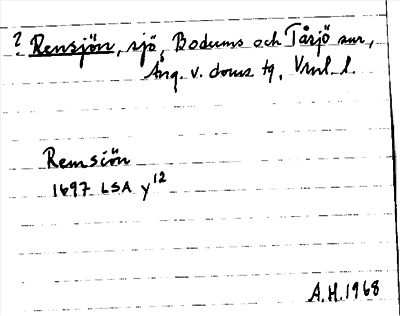 ? Rensjön, sjö, Bodums och Tåsjö snr,
Ång. v. doms tg, Vrnl. l.
Remsiön
1697 LSA y12
A.H. 1968